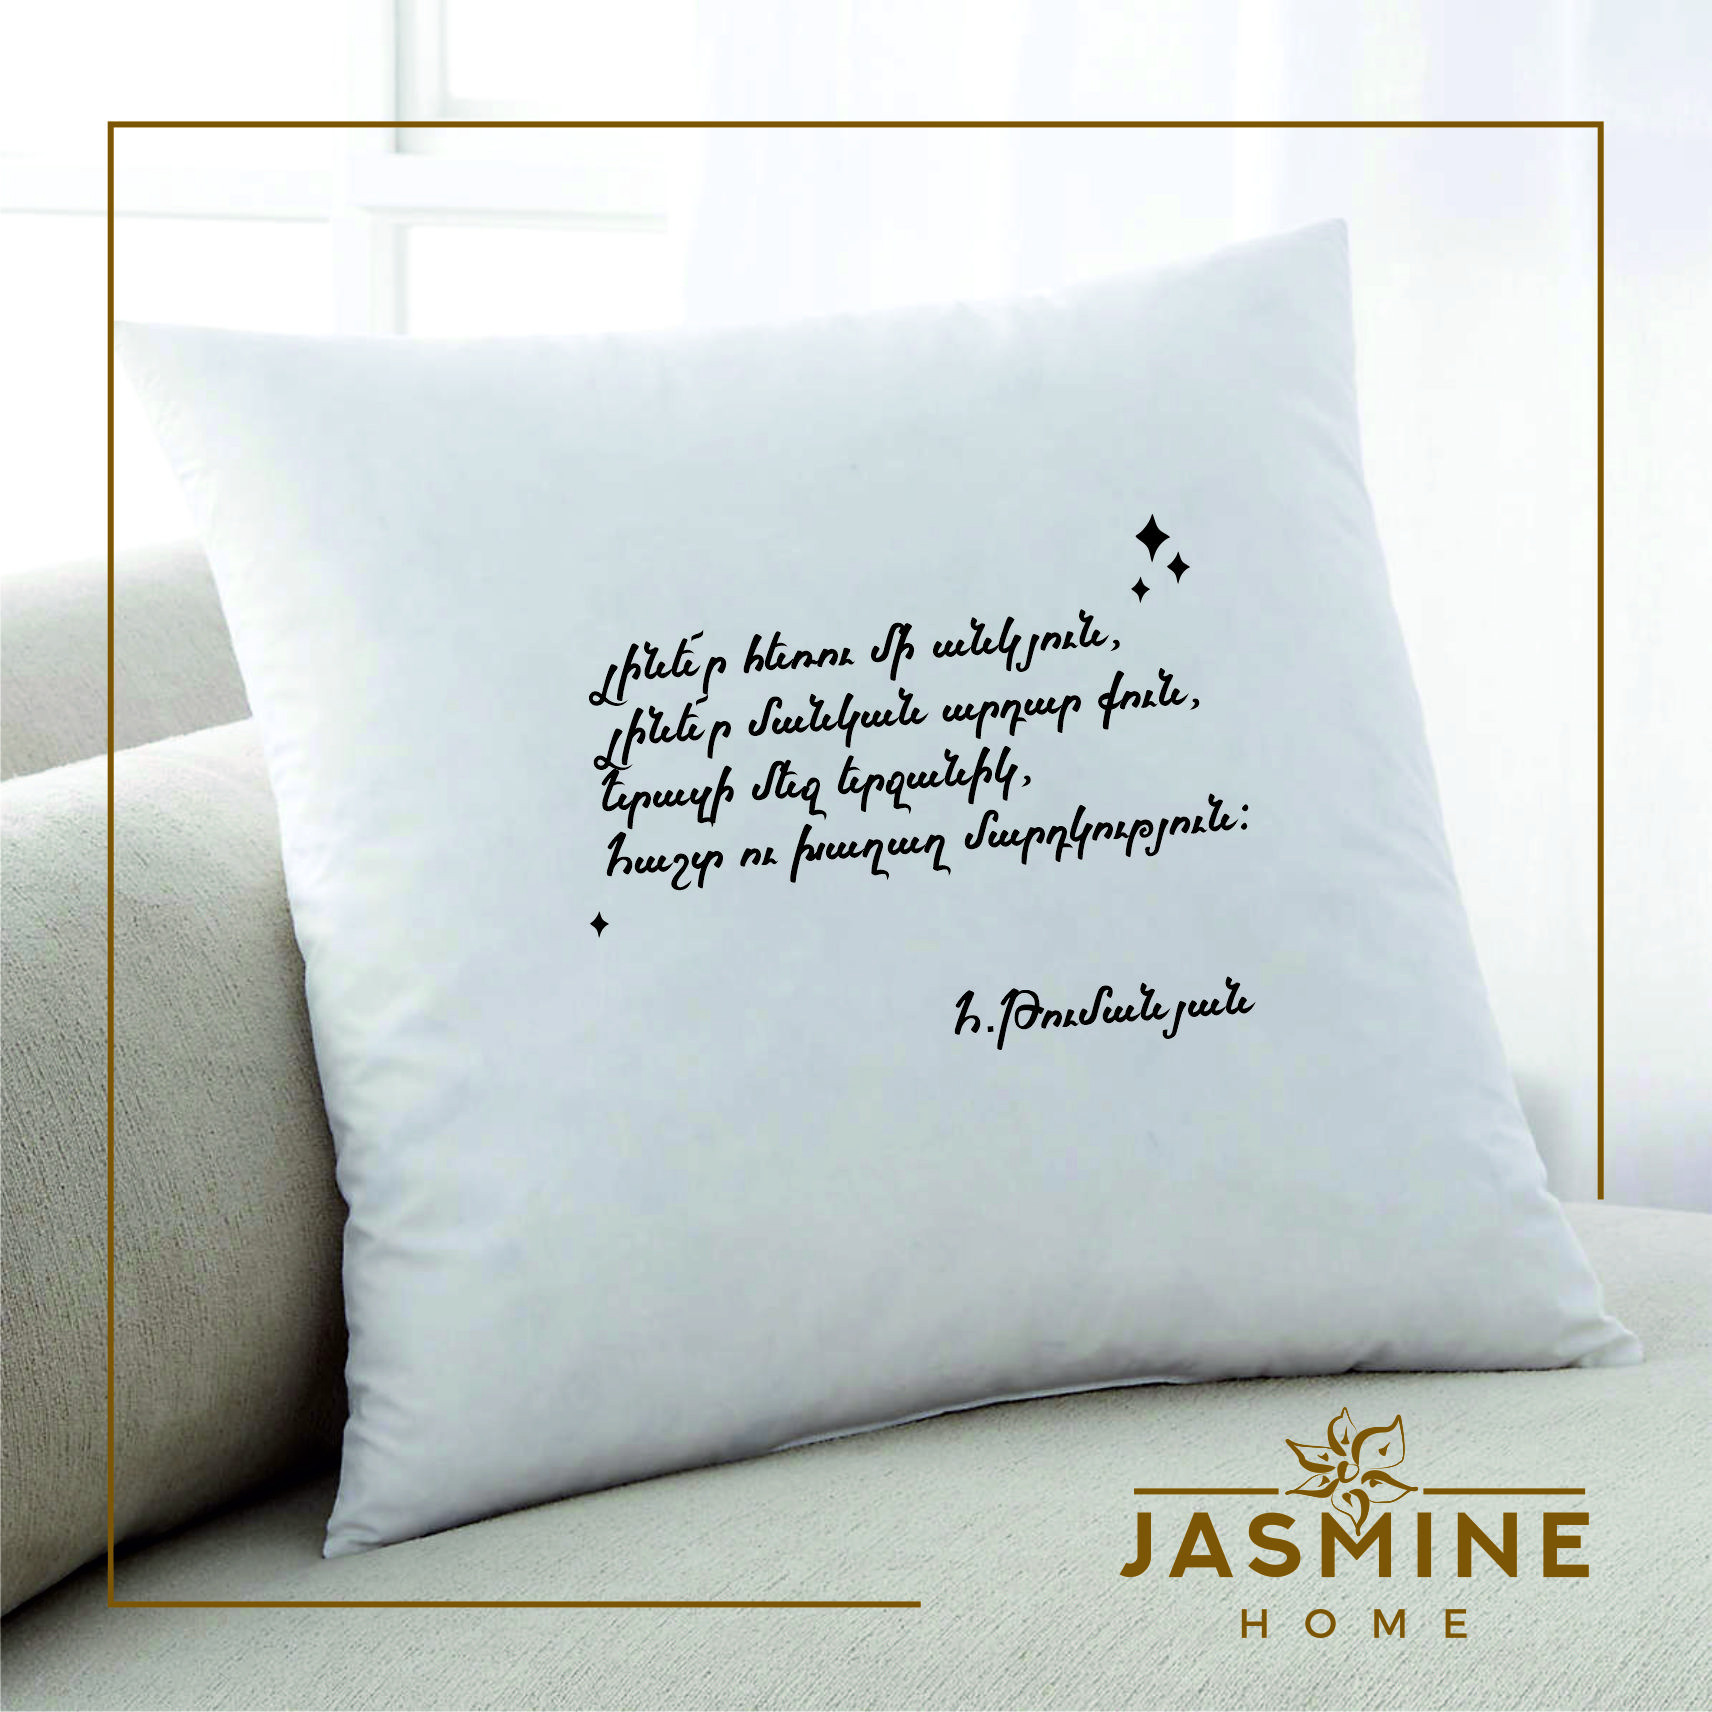 Լինե՜ր հեռու մի անկյուն,
Լինե՜ր մանկան արդար քուն,
Երազի մեջ երջանիկ,
Հաշտ ու խաղաղ մարդկություն:
Հ.Թումանյան
JASMINE
HOME